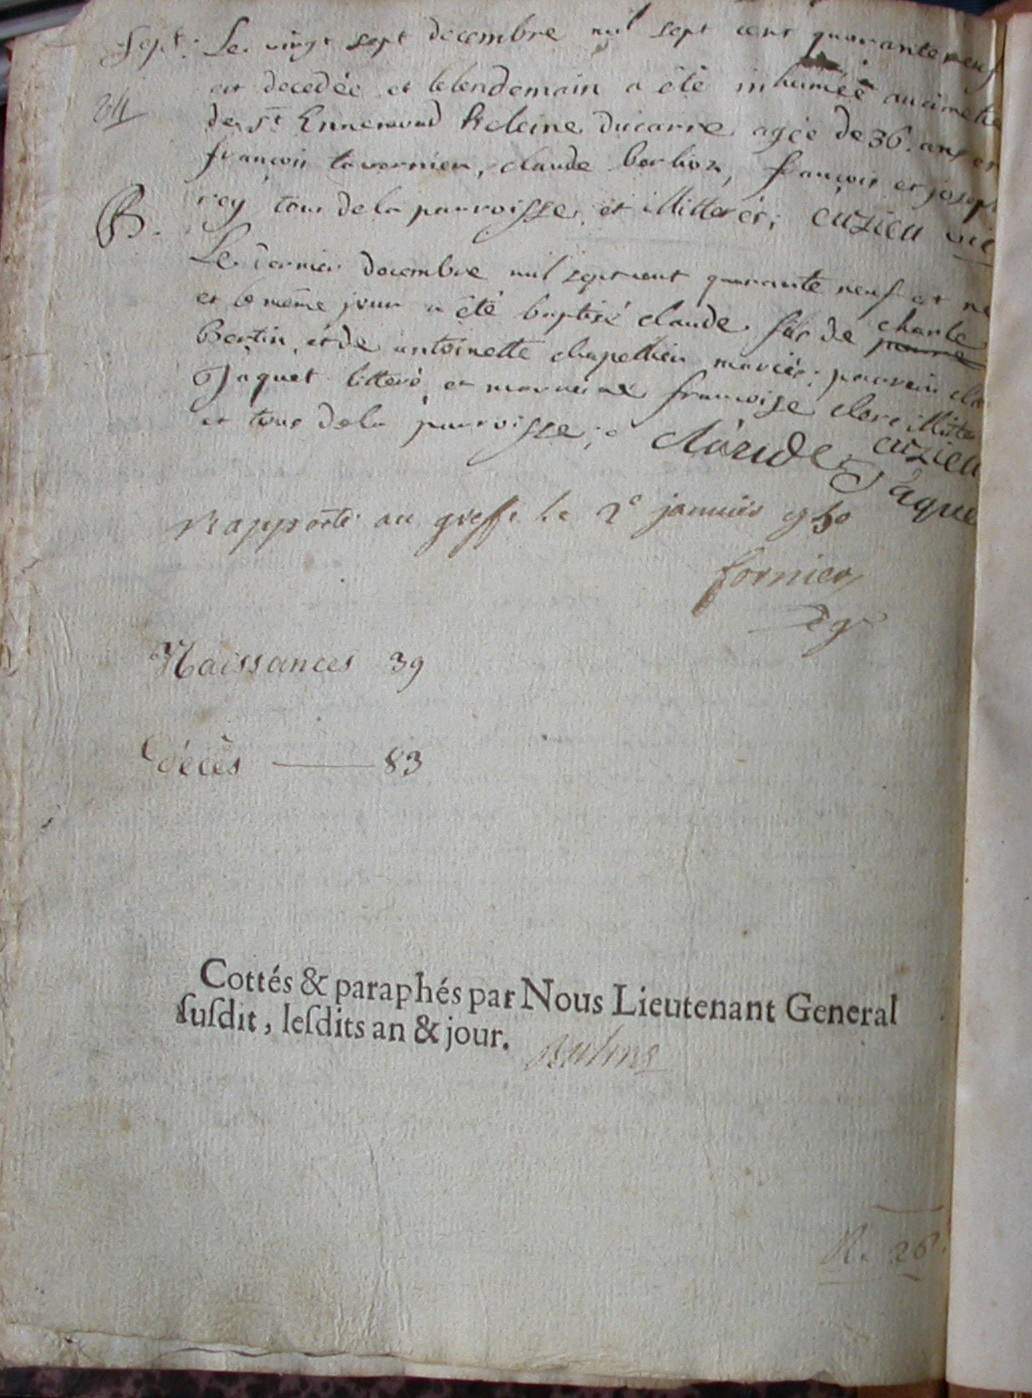 Sept. Le vingt sept decembre mil sept cent quarante neuf
est decedée et le lendemain a été inhumée au cimetie
de St Ennemond heleine ducarre agée de 36. ans en
françois tavernier, claude berlioz, françois et joseph
rey tous de la parroisse et illitterés; cuzieu vic
B. Le dernier decembre mil sept cent quarante neuf est né
et le même jour a été baptisé claude fils de charle
Bertin et de antoinette chapellien mariés; parrein cla
Jaquet litteré et marraine françoise clere illitte
et tous de la parroisse; cuzieu
claude Jaque
Rapporté au greffe le 2e janvier 1750
fornier
Naissances 39
Décès 83
Cottés & paraphés par Nous Lieutenant General
ſuſdit, leſdits an & jour.
R. 26